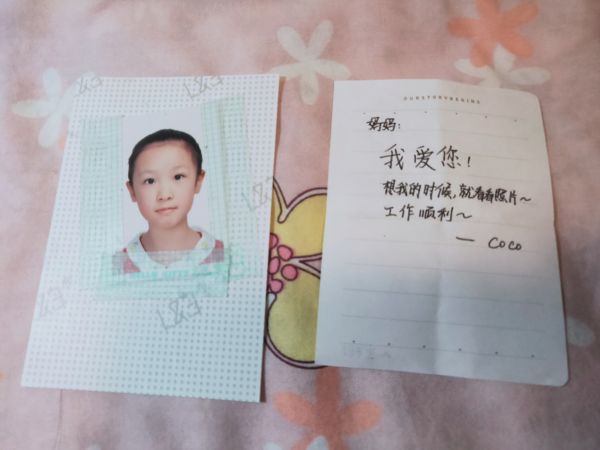 OURSTORYBEGINS
妈妈:
我爱您!
想我的时候,就看看照片~
工作顺利~
— COCO